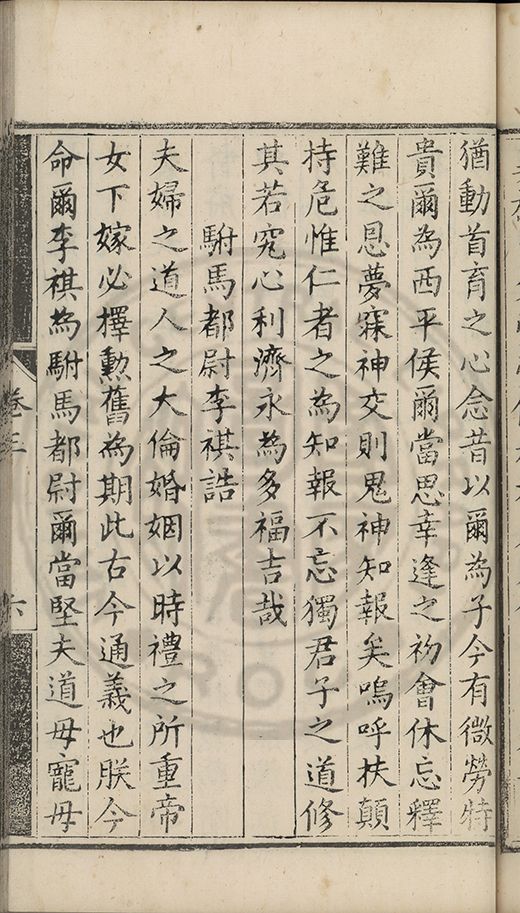 猶動首育之心念昔以爾為子今有微勞特
貴爾為西平侯爾當思幸逢之初會休忘釋
難之恩夢寐神交則鬼神知報矣嗚呼扶顛
持危惟仁者之為知報不忘獨君子之道修
其若究心利濟永為多福吉哉
駙馬都尉李祺誥
夫婦之道人之大倫婚姻以時禮之所重帝
女下嫁必擇勲舊為期此古今通義也朕今
命爾李祺為駙馬都尉爾當堅夫道毋寵毋
卷三
六